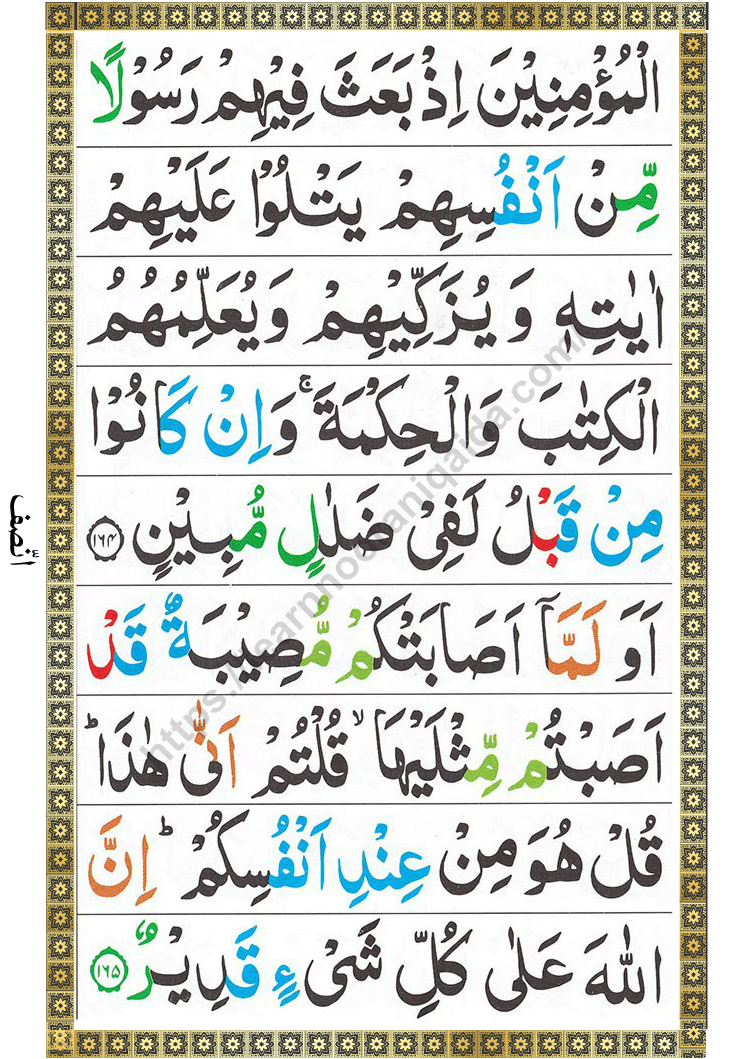 الْمُؤْمِنِيْنَ اِذْ بَعَثَ فِيْهِمْ رَسُوْلًا
مِّنْ اَنْفُسِهِمْ يَتْلُوْا عَلَيْهِمْ
اٰيٰتِهٖ وَ يُزَكِّيْهِمْ وَ يُعَلِّمُهُمُ
الْكِتٰبَ وَ الْحِكْمَةَ ۚ وَ اِنْ كَانُوْا
مِنْ قَبْلُ لَفِيْ ضَلٰلٍ مُّبِيْنٍ ۝۱۶۴
النصف
اَوَ لَمَّاۤ اَصَابَتْكُمْ مُّصِيْبَةٌ قَدْ
اَصَبْتُمْ مِّثْلَيْهَا ۙ قُلْتُمْ اَنّٰى هٰذَا ؕ
قُلْ هُوَ مِنْ عِنْدِ اَنْفُسِكُمْ ؕ اِنَّ
اللّٰهَ عَلٰى كُلِّ شَيْءٍ قَدِيْرٌ ۝۱۶۵